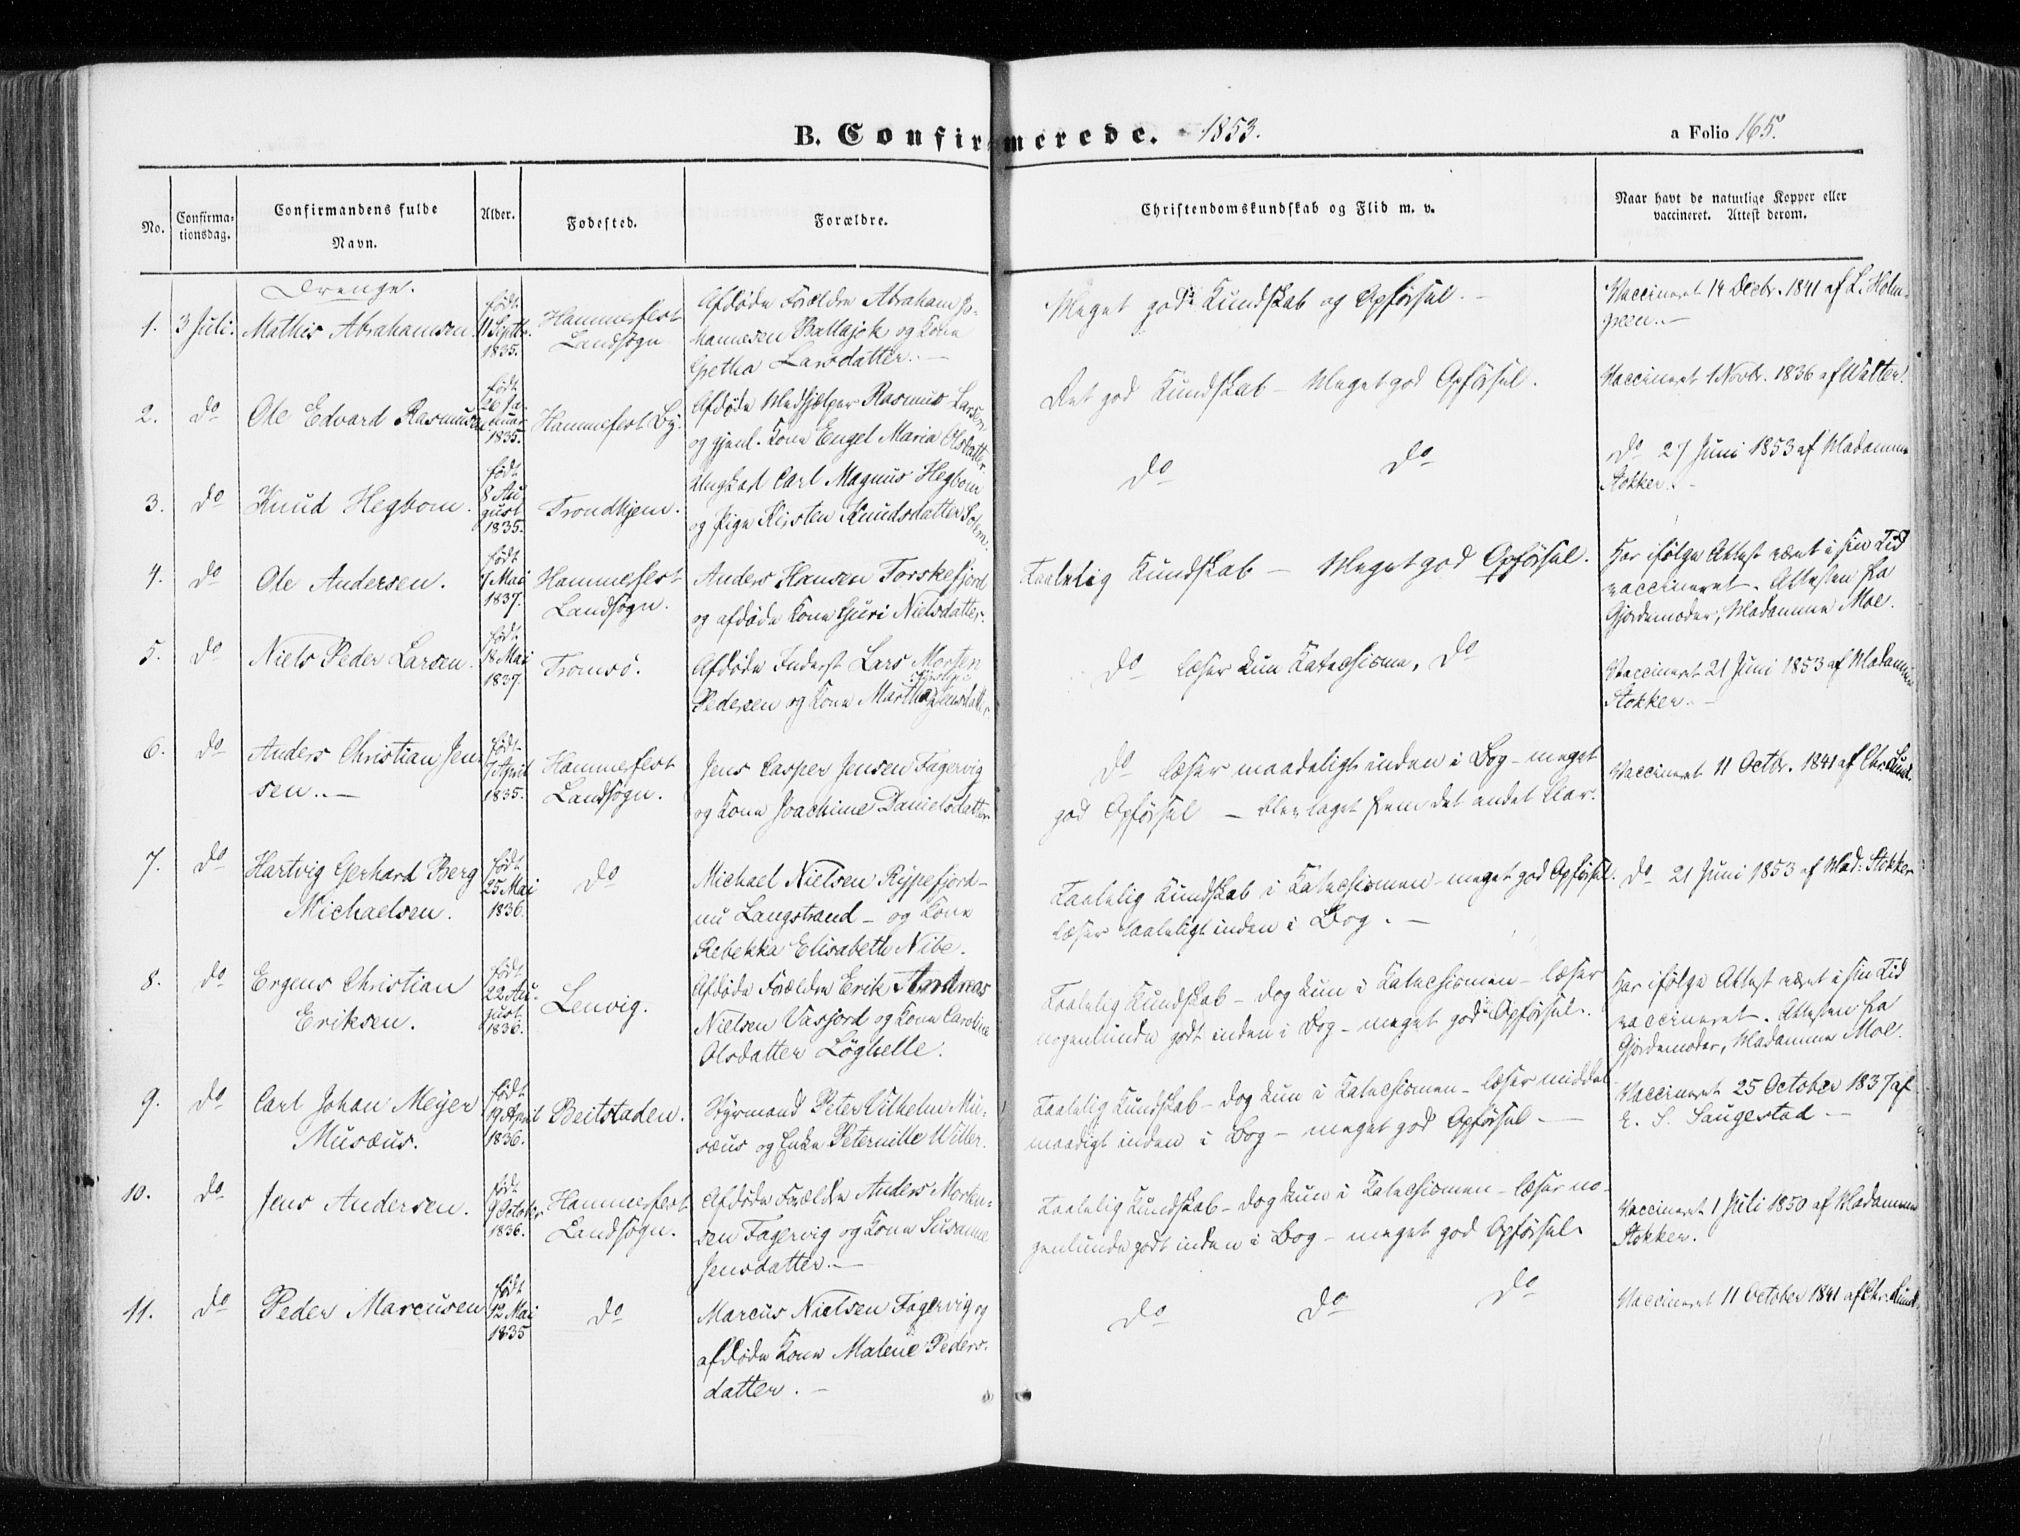 B. Confirmerede. 1853.
a Folio 165.
No.
Confirma-
tionsdag.
Confirmandens fulde
Navn.
Alder.
Fødested.
Forældre.
Christendomskundskab og Flid m. v.
Naar havt de naturlige Kopper eller
vaccineret. Attest derom.
Drenge.
1.
3 Juli.
Mathis Abrahamsen.
født
11 Septbr.
1835.
Hammerfest
Landsogn
Afdøde Forældre Abraham Jo-
hannesen Rattajok og Kone
Grethe Larsdatter. —
Meget god Kundskab og Opførsel. —
Vaccineret 14 Decbr. 1841 af L. Holm-
green. —
2.
do
Ole Edvard Rasmusen
født
26 Ja-
nuar
1835.
Hammerfest By.
Afdøde Medhjælper Rasmus Larsen
og gjenl. Kone Engel Maria Olsdatter.
Ret god Kundskab — Meget god Opførsel.
Vaccineret 1 Novbr. 1836 af Walter.
3.
do
Knud Hegbom.
født
8 Au-
gust
1835.
Trondhjem.
Ungkarl Carl Magnus Hegbom
og Pige Kirsten Knudsdatter Solem.
do do
do 27 Juni 1853 af Madamme
Stokker. —
4.
do
Ole Andersen.
født
7 Mai
1837.
Hammerfest
Landsogn.
Anders Hansen Torskefjord
og afdøde Kone Guri Nielsdatter.
Taalelig Kundskab — Meget god Opførsel.
Har ifølge Attest været i sin Tid
vaccineret. Attesten fra
Gjordemoder, Madamme Moe.
5.
do
Niels Peder Larsen.
født
18 Mai
1837.
Tromsø.
Afdøde Inderst Lars Morten
Pedersen og Kone Martha Jensdatter.
do læser kun Katechisme, do
Vaccineret 21 Juni 1853 af Madamme
Stokker. —
6.
do
Anders Christian Jen-
sen. —
født
7 April
1835.
Hammerfest
Landsogn.
Jens Casper Jensen Fagervig
og Kone Joachime Danielsdatter
do læser maadeligt inden i Bog — meget
god Opførsel — blev taget frem det andet Aar.
Vaccineret 11 Octbr. 1841 af Chr. Lund.
7.
do
Hartvig Gerhard Berg
Michaelsen.
født
25 Mai
1836.
do
Michael Nielsen Rypefjord —
nu Langstrand — og Kone
Rebekka Elisabeth Nibe.
Taalelig Kundskab i Katechismen — meget god Opførsel.
læser taaleligt inden i Bog. —
do 21 Juni 1853 af Mad: Stokker
8.
do
Ergens Christian
Eriksen.
født
22 Au-
gust
1836.
Lenvig.
Afdøde Forældre Erik Andreas
Nielsen Vasjord og Kone Caroline
Olsdatter Løghelle.
Taalelig Kundskab — dog kun i Katechismen — læser
nogenlunde godt inden i Bog — meget god Opførsel.
Har ifølge Attest været i sin Tid
vaccineret. Attesten fra
Gjordemoder, Madamme Moe.
9.
do
Carl Johan Meyer
Musæus.
født
19 April
1836.
Beitstaden.
Styrmand Peter Vilhelm Mu-
sæus og Enke Peternille Willer.
Taalelig Kundskab — dog kun i Katechismen — læser middel-
maadigt inden i Bog — meget god Opførsel —
Vaccineret 25 October 1837 af
E. S. Saugestad —
10.
do
Jens Andersen.
født
9 October
1836.
Hammerfest
Landsogn.
Afdøde Forældre Anders Morten-
sen Fagervig og Kone Susanne
Jensdatter. —
Taalelig Kundskab — dog kun i Katechismen — læser no-
genlunde godt inden i Bog — meget god Opførsel.
Vaccineret 1 Juli 1850 af Madamme
Stokker.
11.
do
Peder Marcusen
født
12 Mai
1835
do
Marcus Nielsen Fagervig og
afdøde Kone Malene Peders-
datter. —
do do do
Vaccineret 11 October 1841 af Chr. Lund.